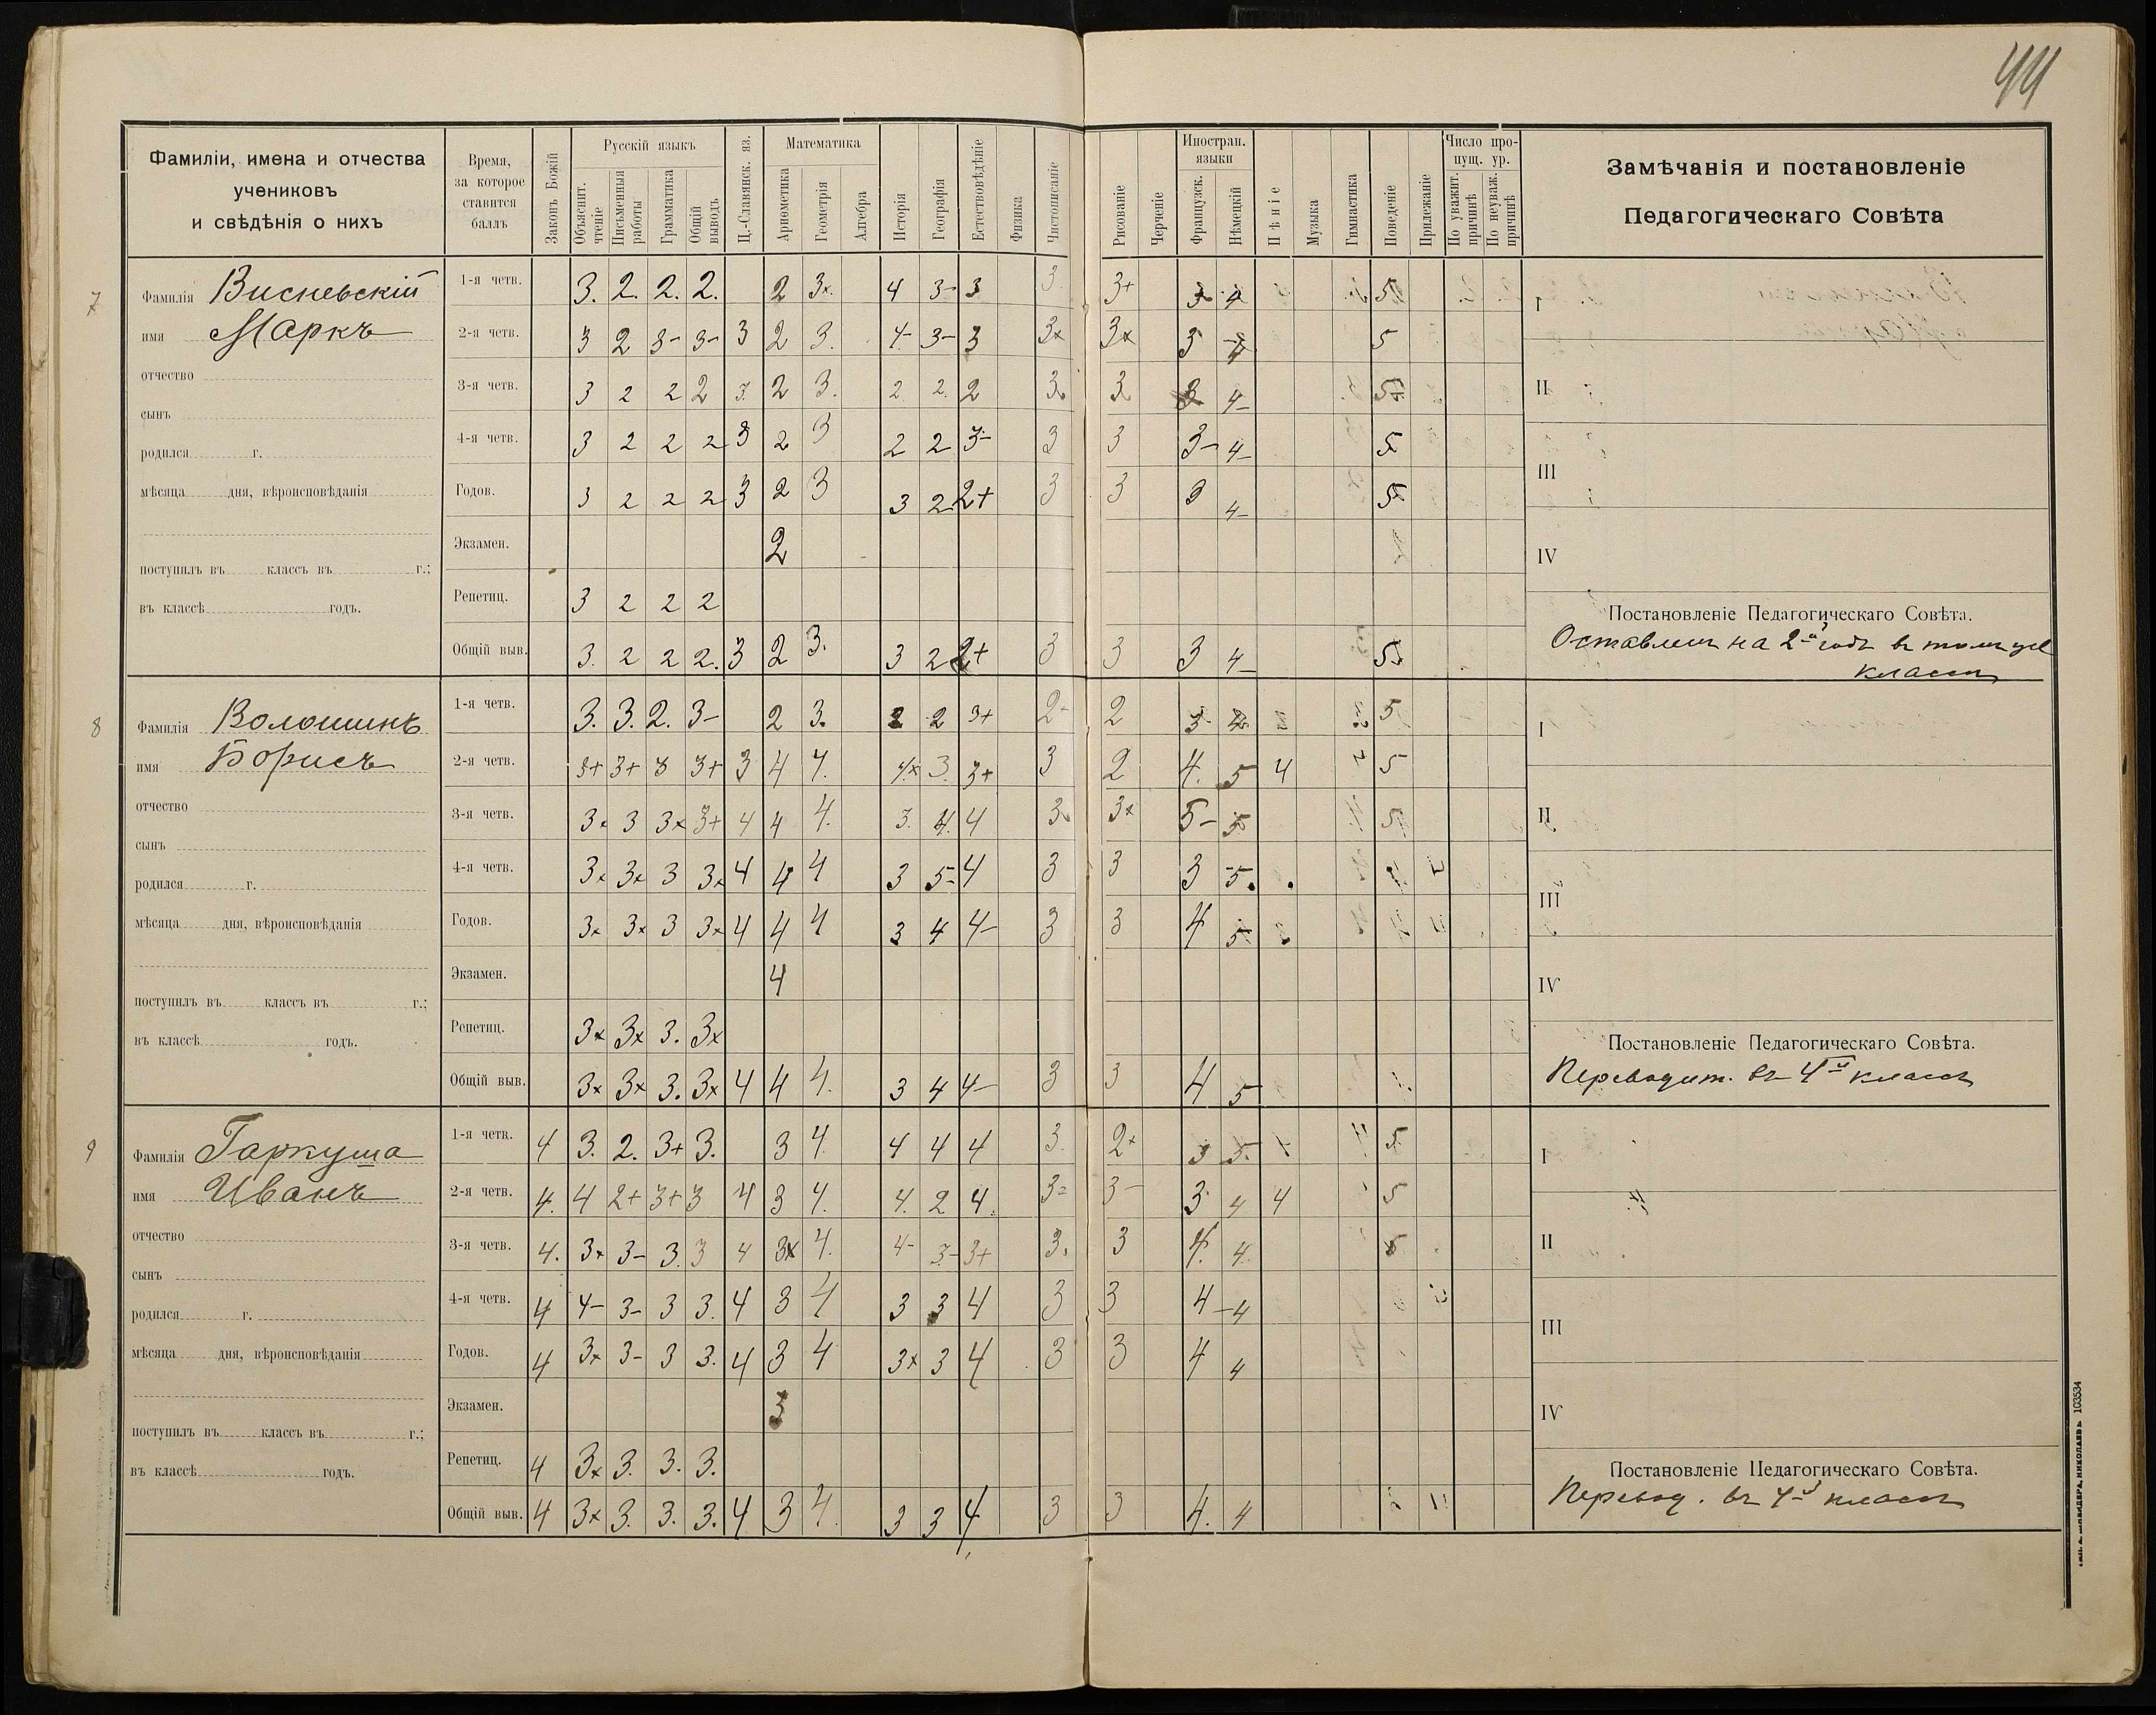 44
Фамиліи, имена и отчества
учениковъ
и свѣдѣнія о нихъ
Время,
за которое
ставится
баллъ
Законъ Божій
Русскій языкъ
Объяснит. чтеніе
Письменныя работы
Грамматика
Общій выводъ
Ц.-Славянск. яз.
Математика
Ариѳметика
Геометрія
Алгебра
Исторія
Географія
Естествовѣдѣніе
Физика
Чистописаніе
Рисованіе
Черченіе
Иностран. языки
Французск.
Нѣмецкій
Пѣніе
Музыка
Гимнастика
Поведеніе
Прилежаніе
Число пропущ. ур.
По уважит. причинѣ
По неуваж. причинѣ
Замѣчанія и постановленіе
Педагогическаго Совѣта
7
Фамилія Висневскій
имя Маркъ
отчество
сынъ
родился г.
мѣсяца дня, вѣроисповѣданія
поступилъ въ классъ въ г.;
въ классѣ годъ.
1-я четв. 3. 2. 2. 2. 2 3х. 4 3- 3 3. 3+ 3 4 5
2-я четв. 3 2 3- 3- 3 2 3. 4- 3- 3 3х 3х 3 4 5
3-я четв. 3 2 2 2 3. 2 3. 2 2. 2 3. 3 3 4- 5
4-я четв. 3 2 2 2 3 2 3 2 2 3- 3 3 3- 4- 5
Годов. 3 2 2 2 3 2 3 3 2 2+ 3 3 3 4- 5
Экзамен. 2
Репетиц. 3 2 2 2
Общій выв. 3. 2 2 2. 3 2 3. 3 2 2+ 3 3 3 4- 5
I
II
III
IV
Постановленіе Педагогическаго Совѣта.
Оставленъ на 2-й годъ въ томъ же
классѣ
8
Фамилія Волошинъ
имя Борисъ
отчество
сынъ
родился г.
мѣсяца дня, вѣроисповѣданія
поступилъ въ классъ въ г.;
въ классѣ годъ.
1-я четв. 3. 3. 2. 3- 2 3. 2 2 3+ 2- 2 3- 5
2-я четв. 3+ 3+ 3 3+ 3 4 4. 4х 3. 3+ 3 2 4. 5 4 5
3-я четв. 3х 3 3х 3+ 4 4 4. 3. 4. 4 3. 3х 5- 5 5
4-я четв. 3х 3х 3 3х 4 4 4 3 5- 4 3 3 3 5.
Годов. 3х 3х 3 3х 4 4 4 3 4 4- 3 3 4 5
Экзамен. 4
Репетиц. 3х 3х 3. 3х
Общій выв. 3х 3х 3. 3х 4 4 4. 3 4 4- 3 3 4 5
I
II
III
IV
Постановленіе Педагогическаго Совѣта.
Переводит. въ 4-й классъ
9
Фамилія Гаркуша
имя Иванъ
отчество
сынъ
родился г.
мѣсяца дня, вѣроисповѣданія
поступилъ въ классъ въ г.;
въ классѣ годъ.
1-я четв. 4 3. 2. 3+ 3. 3 4. 4 4 4 3. 2+ 3 5- 5
2-я четв. 4. 4 2+ 3+ 3 4 3 4. 4. 2 4. 3= 3- 3 4 4 5
3-я четв. 4. 3х 3- 3. 3 4 3х 4. 4- 3- 3+ 3. 3 4. 4. 5
4-я четв. 4 4- 3- 3 3. 4 3 4 3 3 4 3 3 4- 4
Годов. 4 3х 3- 3 3. 4 3 4 3х 3 4 3 3 4 4
Экзамен. 3
Репетиц. 4 3х 3. 3. 3.
Общій выв. 4 3х 3. 3. 3. 4 3 4. 3 3 4 3 3 4. 4
I
II
III
IV
Постановленіе Педагогическаго Совѣта.
Перевод. въ 4-й классъ
103534